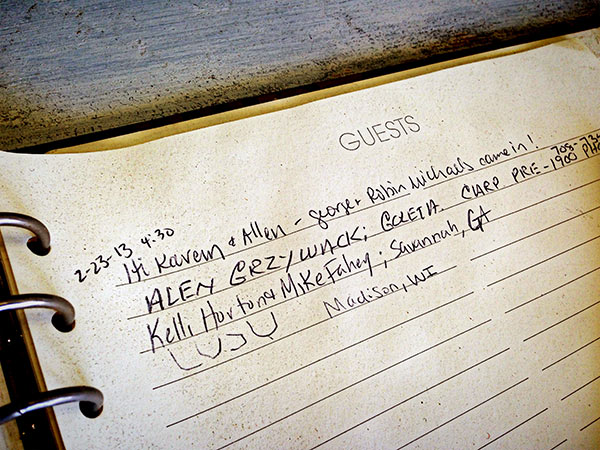 GUESTS
2-23-13 4:30
Hi Karen & Allen - George & Robin Michaels came in!
ALEN GRZYWACK; GOLETA. CARP PRE-1900
Kelli Horton & Mike Fahey; Savannah, GA
Madison, WI